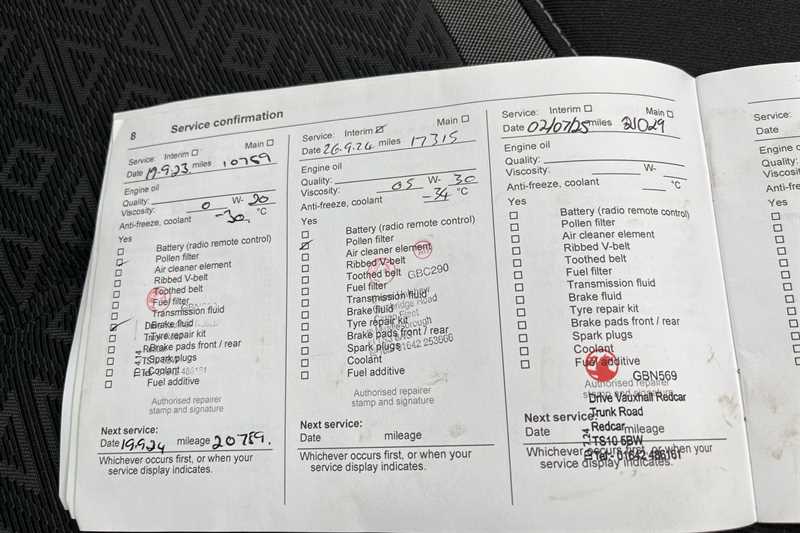 8 Service confirmation
Service: Interim Main
Date 19.9.23 miles 10789
Engine oil
Quality:
Viscosity: 0 W- 20
Anti-freeze, coolant -30 °C
Yes
Battery (radio remote control)
Pollen filter
Air cleaner element
Ribbed V-belt
Toothed belt
Fuel filter
Transmission fluid
Brake fluid
Tyre repair kit
Brake pads front / rear
Spark plugs
Coolant
Fuel additive
Authorised repairer
stamp and signature
Next service:
Date 19.9.24 mileage 20789.
Whichever occurs first, or when your
service display indicates.
Service: Interim Main
Date 26.9.24 miles 17315
Engine oil
Quality:
Viscosity: 05 W- 30
Anti-freeze, coolant -34 °C
Yes
Battery (radio remote control)
Pollen filter
Air cleaner element
Ribbed V-belt
Toothed belt GBC290
Fuel filter
Transmission fluid
Brake fluid
Tyre repair kit
Brake pads front / rear
Spark plugs 01642 253666
Coolant
Fuel additive
Authorised repairer
stamp and signature
Next service:
Date mileage
Whichever occurs first, or when your
service display indicates.
Service: Interim Main
Date 02/07/25 miles 21029
Engine oil
Quality:
Viscosity: W-
Anti-freeze, coolant °C
Yes
Battery (radio remote control)
Pollen filter
Air cleaner element
Ribbed V-belt
Toothed belt
Fuel filter
Transmission fluid
Brake fluid
Tyre repair kit
Brake pads front / rear
Spark plugs
Coolant
Fuel additive
GBN569
Authorised repairer
stamp and signature
Drive Vauxhall Redcar
Trunk Road
Redcar
TS10 5BW
Tel:- 01642 486161
Next service:
Date mileage
Whichever occurs first, or when your
service display indicates.
Service:
Date
Engine oil
Quality:
Anti-fr
Yes